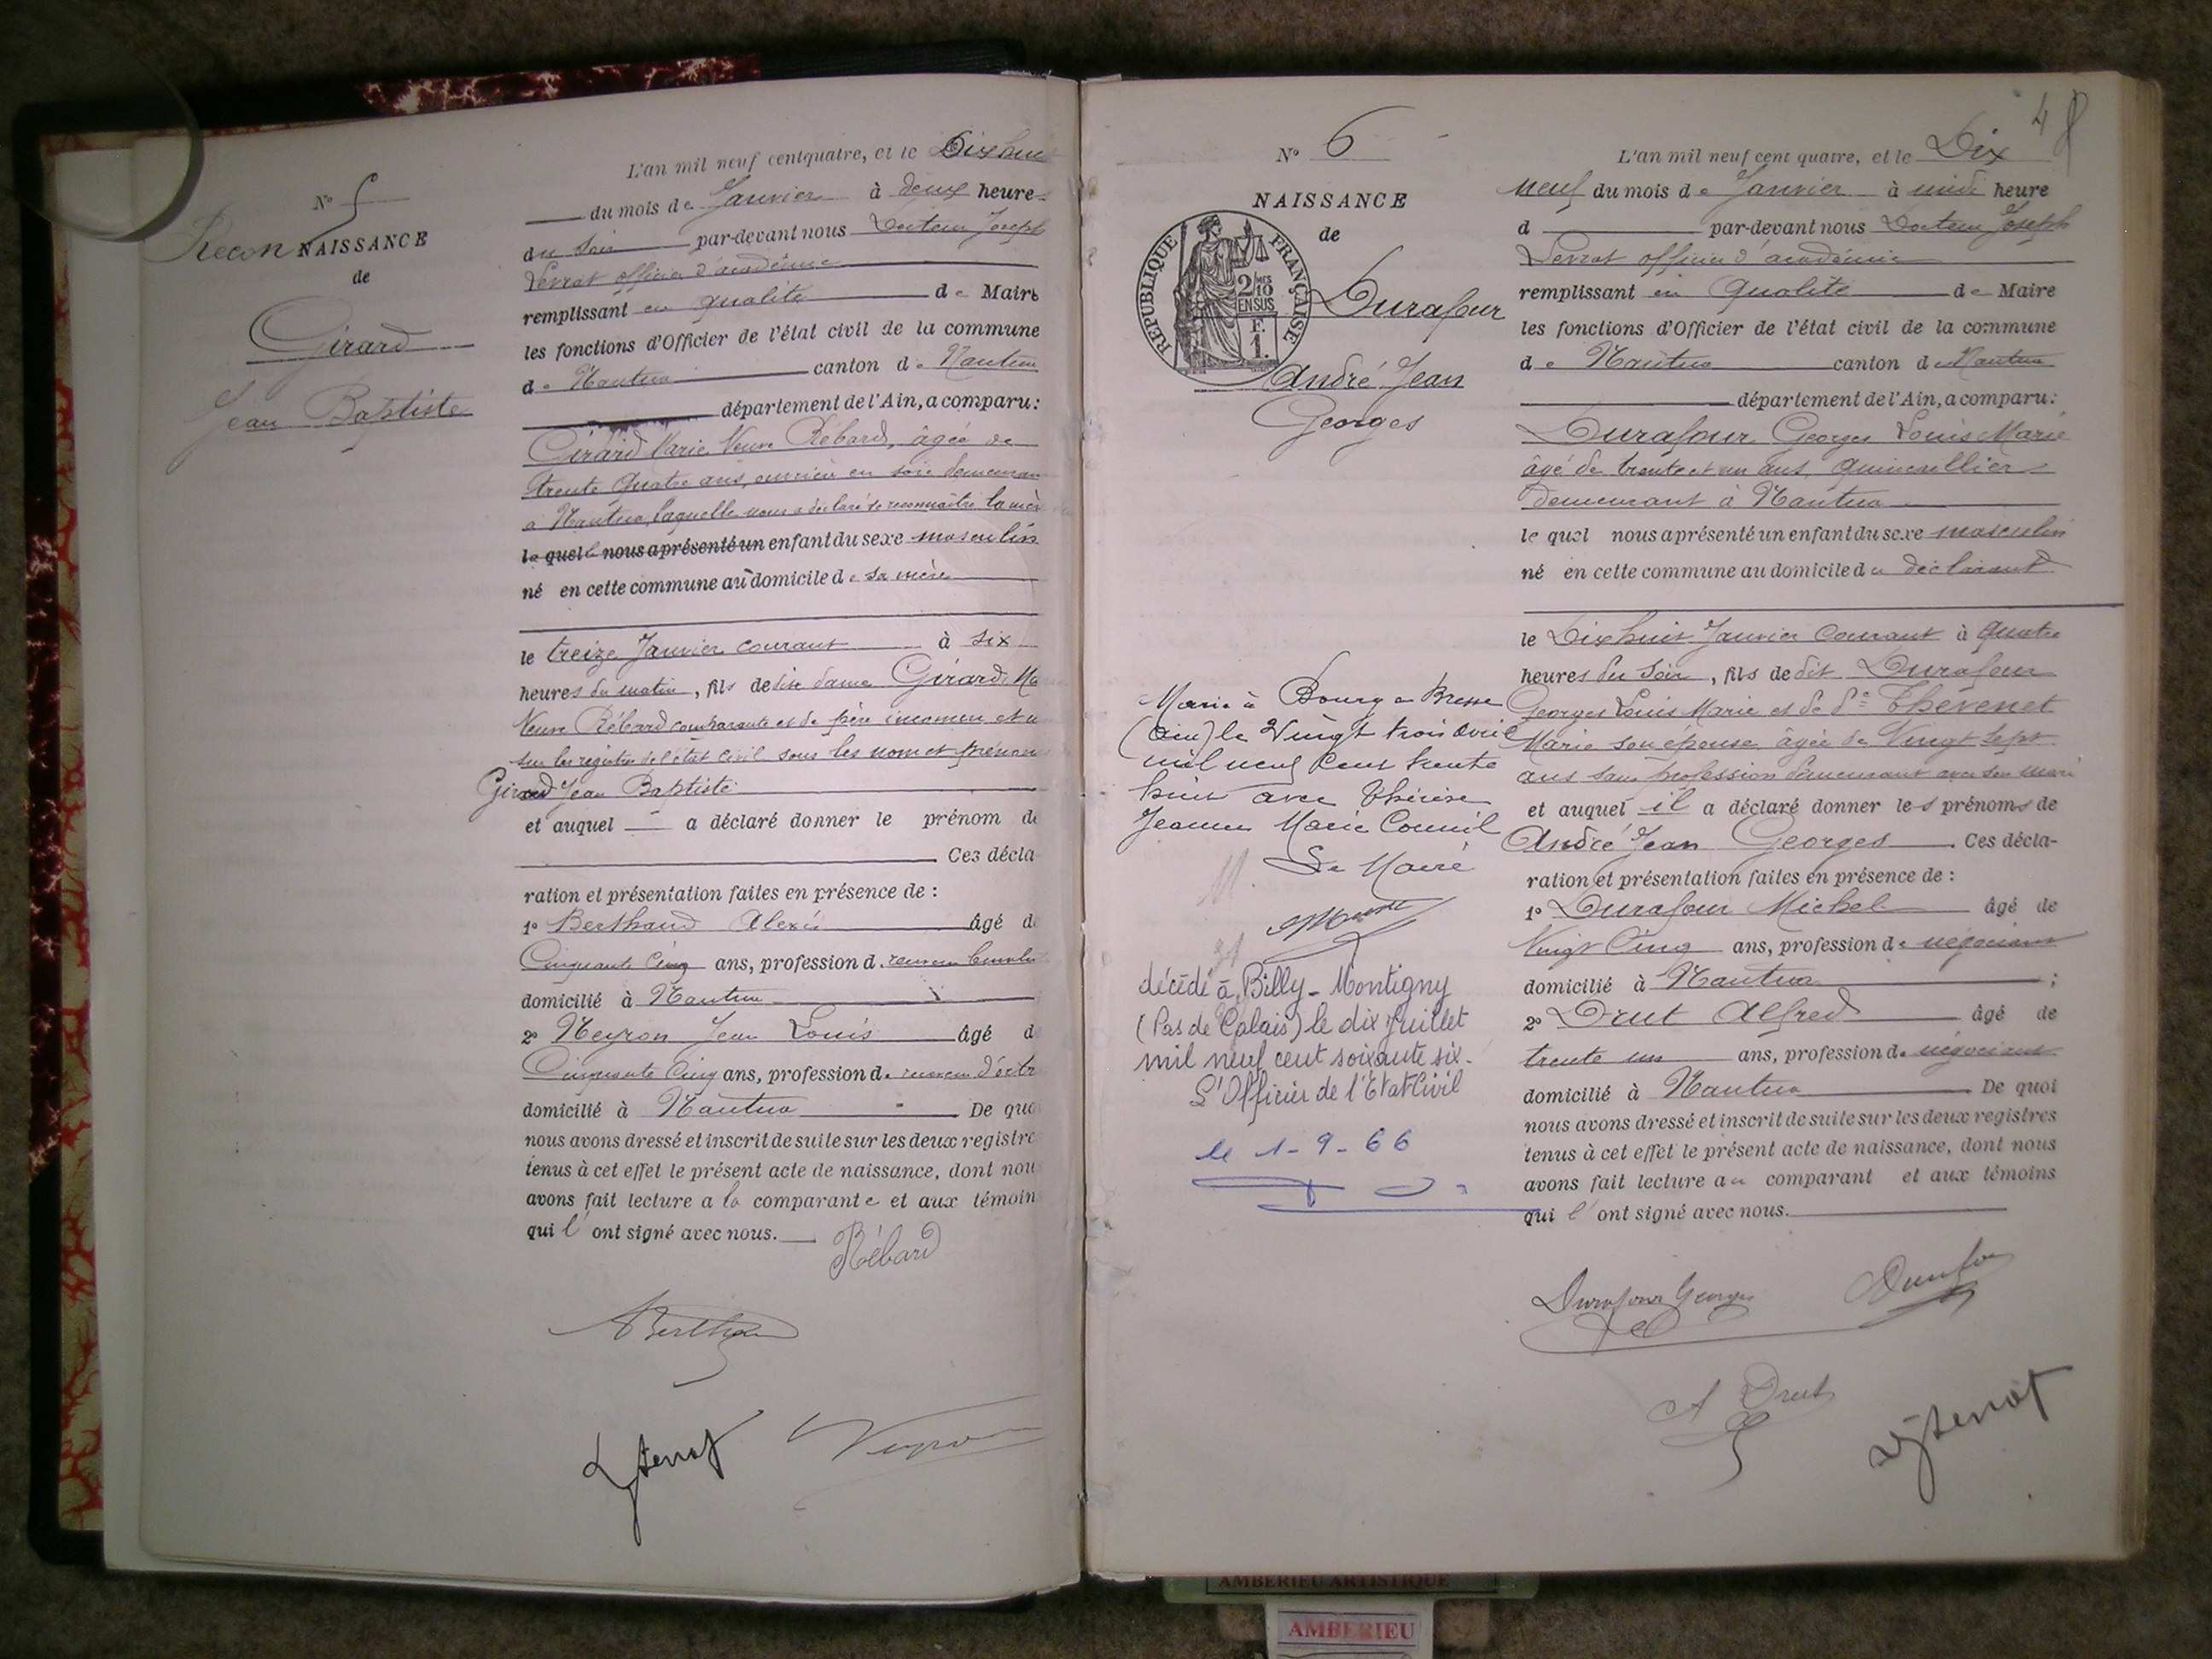 N° 5
Recon NAISSANCE
de
Girard
Jean Baptiste
L'an mil neuf cent quatre, et le Dix huit
du mois de Janvier à deux heures
du soir par-devant nous Docteur Joseph
Levrat officier d'académie
remplissant en qualité de Maire
les fonctions d'Officier de l'état civil de la commune
de Nantua canton de Nantua
département de l'Ain, a comparu :
Girard Marie Veuve Rébard, âgée de
trente quatre ans, ouvrière en soie demeurant
à Nantua, laquelle nous a déclaré se reconnaître la mère
le quelle nous a présenté un enfant du sexe masculin
né en cette commune au domicile de sa mère
le treize Janvier courant à six
heures du matin, fils de dite dame Girard Ma
Veuve Rébard comparante et de père inconnu et
sur les registres de l'état civil sous les nom et prénoms
Girard Jean Baptiste
et auquel a déclaré donner le prénom de
Ces décla-
ration et présentation faites en présence de :
1° Berthaud Alexis âgé de
Cinquante Cinq ans, profession d.
domicilié à Nantua
2° Neyron Jean Louis âgé de
Cinquante Cinq ans, profession d.
domicilié à Nantua De quoi
nous avons dressé et inscrit de suite sur les deux registres
tenus à cet effet le présent acte de naissance, dont nous
avons fait lecture a la comparante et aux témoins
qui l'ont signé avec nous.
Rébard
Berthau
Neyron
N° 6
NAISSANCE
de
REPUBLIQUE FRANÇAISE
2/10 MES
EN SUS
F.
1.
Durafour
André Jean
Georges
Marié à Bourg en Bresse
(Ain) le Vingt trois Avril
mil neuf Cent trente
huit avec Thérèse
Jeanne Marie Conseil
Le Maire
décédé à Billy-Montigny
(Pas de Calais) le dix Juillet
mil neuf cent soixante six.
L'Officier de l'Etat-Civil
le 1-9-66
48
L'an mil neuf cent quatre, et le Dix
neuf du mois de Janvier à midi heure
d par-devant nous Docteur Joseph
Levrat officier d'académie
remplissant en qualité de Maire
les fonctions d'Officier de l'état civil de la commune
de Nantua canton de Nantua
département de l'Ain, a comparu :
Durafour Georges Louis Marie
âgé de trente et un ans, quincaillier
demeurant à Nantua
le quel nous a présenté un enfant du sexe masculin
né en cette commune au domicile du déclarant
le Dix huit Janvier Courant à quatre
heures du Soir, fils de dit Durafour
Georges Louis Marie et de de Thévenet
Marie son épouse âgée de Vingt sept
ans sans profession demeurant avec son mari
et auquel il a déclaré donner les prénoms de
André Jean Georges. Ces décla-
ration et présentation faites en présence de :
1° Durafour Michel âgé de
Vingt Cinq ans, profession de négociant
domicilié à Nantua ;
2° Drut Alfred âgé de
trente un ans, profession de négociant
domicilié à Nantua De quoi
nous avons dressé et inscrit de suite sur les deux registres
tenus à cet effet le présent acte de naissance, dont nous
avons fait lecture au comparant et aux témoins
qui l'ont signé avec nous.
Durafour Georges
Durafour
A Drut
AMBERIEU ARTISTIQUE
AMBERIEU